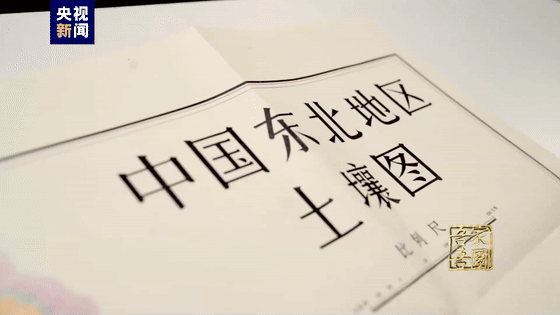 央视
新闻
中国东北地区
土壤图
比例尺